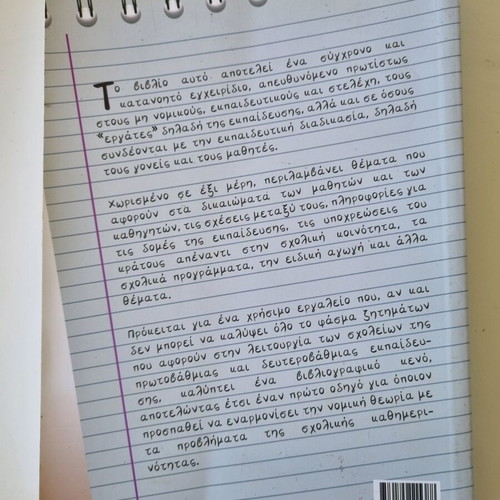 Το βιβλίο αυτό αποτελεί ένα σύγχρονο και
κατανοητό εγχειρίδιο, απευθυνόμενο πρωτίστως
στους μη νομικούς, εκπαιδευτικούς και στελέχη, τους
«εργάτες» δηλαδή της εκπαίδευσης, αλλά και σε όσους
συνδέονται με την εκπαιδευτική διαδικασία, δηλαδή
τους γονείς και τους μαθητές.
Χωρισμένο σε έξι μέρη, περιλαμβάνει θέματα που
αφορούν στα δικαιώματα των μαθητών και των
καθηγητών, τις σχέσεις μεταξύ τους, πληροφορίες για
τις δομές της εκπαίδευσης, τις υποχρεώσεις του
κράτους απέναντι στην σχολική κοινότητα, τα
σχολικά προγράμματα, την ειδική αγωγή και άλλα
θέματα.
Πρόκειται για ένα χρήσιμο εργαλείο που, αν και
δεν μπορεί να καλύψει όλο το φάσμα ζητημάτων
που αφορούν στην λειτουργία των σχολείων της
πρωτοβάθμιας και δευτεροβάθμιας εκπαίδευ-
σης, καλύπτει ένα βιβλιογραφικό κενό,
αποτελώντας έτσι έναν πρώτο οδηγό για όποιον
προσπαθεί να εναρμονίσει την νομική θεωρία με
τα προβλήματα της σχολικής καθημερι-
νότητας.